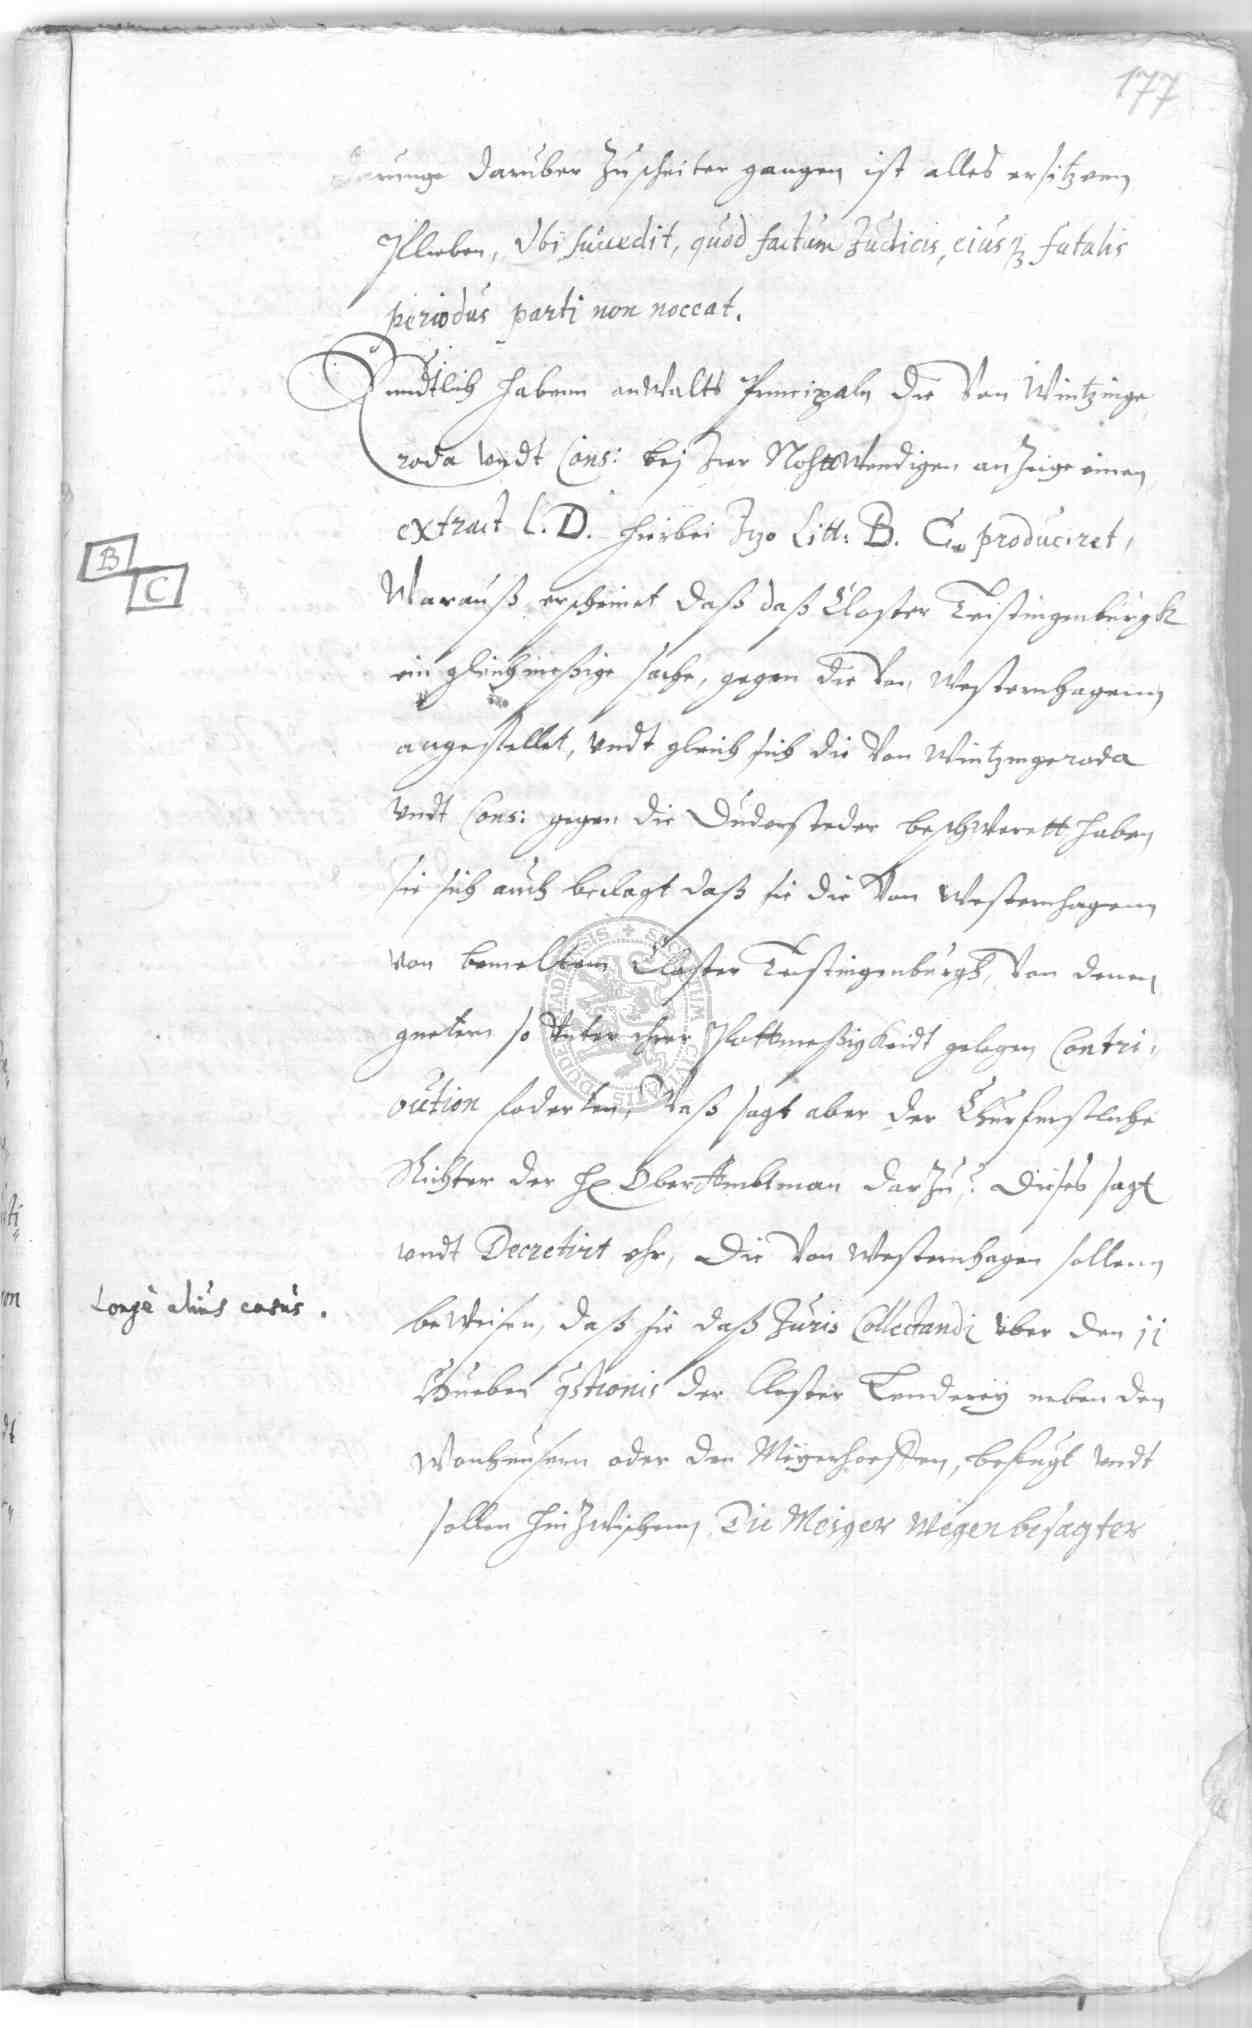 177
daruber Zu scheiter gangen ist alles ersitzen
Plieben, Vbi succedit, quod factum Judicis, eiusq; fatalis
periodus parti non noceat.
Entlich habenn anwalts Principaln die Von Wintzinge
roda vndt Cons: bej Irer Nohttwendigen anZeige einen
extract L. D. hierbei Izo Litt: B. C. produciret,
B
C
Warauß erscheinet daß daß Closter Teistingenburgk
ein gleichmeßige sache, gegen die Von Westernhagenn
angestellet, vndt gleich sich die Von Wintzingeroda
vndt Cons: gegen die Dudersteder beschwerett haben
sie sich auch beclagt daß sie die Von Westernhagenn
von bemeltem Closter Teistingenburgk, Von denen
guetern so Vnter ihrer gelegen Contri-
bution foderten, Waß sagt aber der Churfurstliche
Richter der H. OberAmbtman darZu,? Dieses sagt
vndt Decretirt ehr, Die Von Westernhagen sollenn
Longè alius casus.
beWeisen, daß sie daß Juris Collectandi vber den 11
Hueben qstionis der Closter Lenderey neben den
Wonheusern oder den Meyerhoeffen, befugt vndt
sollen hinZwischenn Die Meiger Wegen besagter
DUDERSTADIENSIS + SECRETUM CIVITATIS